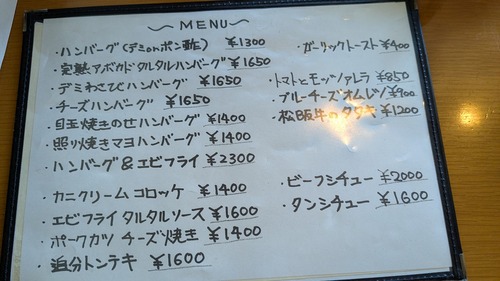 ～MENU～
・ハンバーグ(デミorポン酢) ¥1300
・完熟アボカドタルタルハンバーグ ¥1650
・デミわさびハンバーグ ¥1650
・チーズハンバーグ ¥1650
・目玉焼きのせハンバーグ ¥1400
・照り焼きマヨハンバーグ ¥1400
・ハンバーグ&エビフライ ¥2300
・カニクリームコロッケ ¥1400
・エビフライタルタルソース ¥1600
・ポークカツチーズ焼き ¥1400
・追分トンテキ ¥1600
・ガーリックトースト ¥400
・トマトとモッツァレラ ¥850
・ブルーチーズオムレツ ¥900
・松阪牛のタタキ ¥1200
・ビーフシチュー ¥2000
・タンシチュー ¥1600